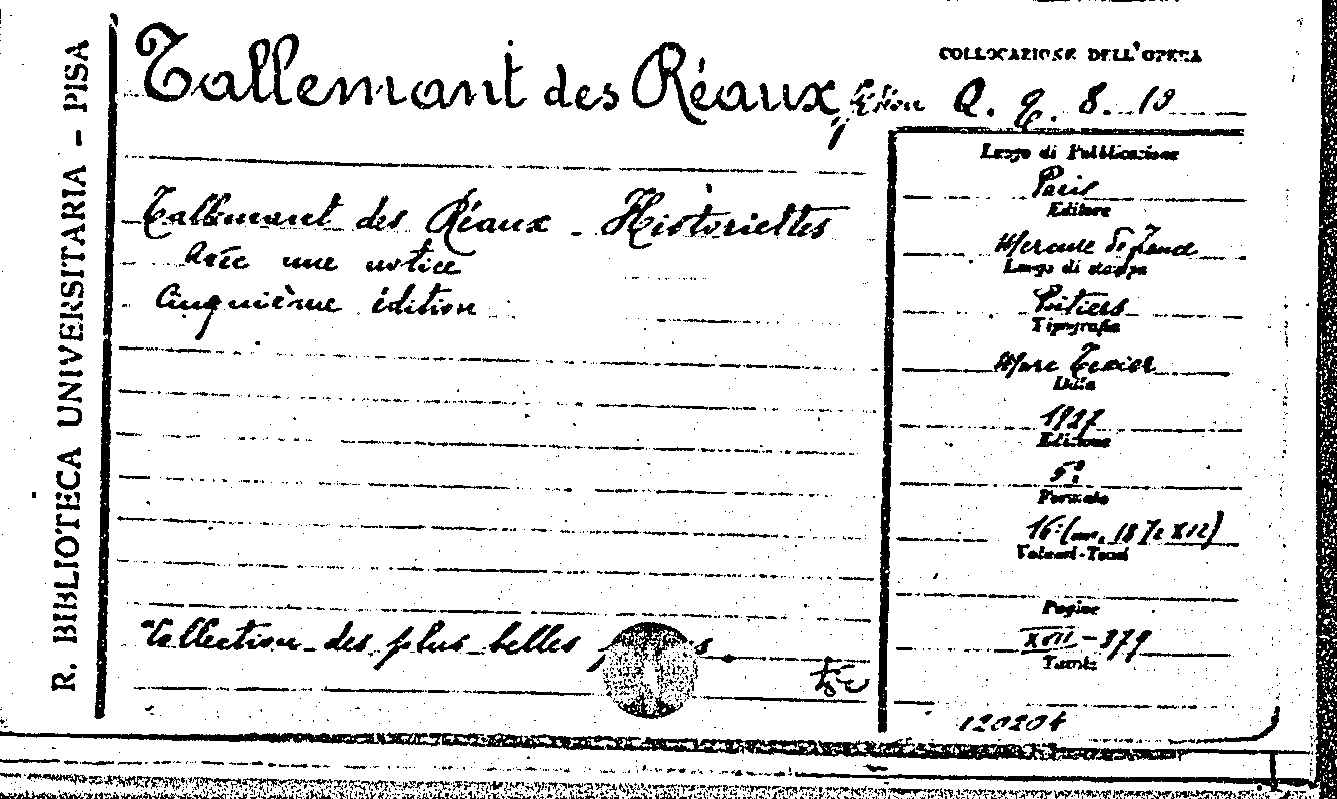 R. BIBLIOTECA UNIVERSITARIA - PISA
Tallemant des Réaux,
COLLOCAZIONE DELL'OPERA
Q. q. 8. 10
Tallemant des Réaux - Historiettes
Avec une notice
Cinquième édition
"Collection des plus belles
Luogo di Pubblicazione
Paris
Editore
Mercure de France
Luogo di stampa
Poitiers
Tipografia
Marc Texier
Data
1927
Edizione
5ª
Formato
16º (cm. 18 ½ x 12)
Volumi-Tomi
Pagine
XVII - 379
Tavole
120204